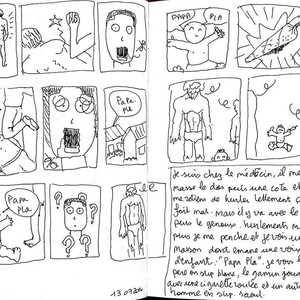 PAPA PLA
Papa
Pla
Papa
Pla
? ?
? ?
13.09.200
je suis chez le médecin, il me
masse le dos puis une cote et
me dessus de hurler tellement ça
fait mal. mais il y va avec le
puis le genoux, hurlements
puis je me penche et je vois une
maison dont émane une voix
d'enfant: "Papa Pla". je vois le
père en slip blanc, le gamin joue
avec une cigarette roulée et un autre
homme en slip saoul